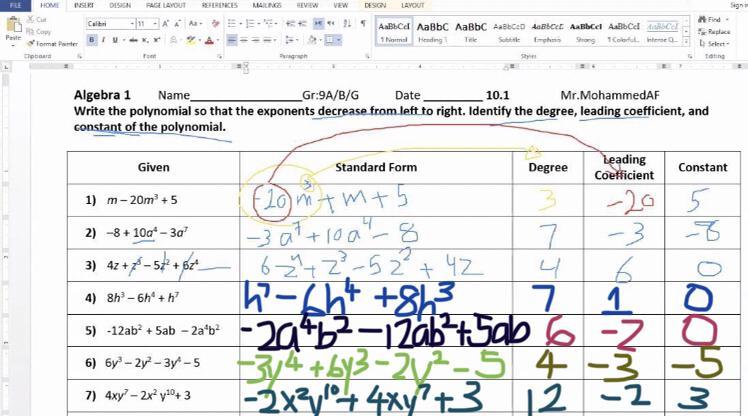 FILE HOME INSERT DESIGN PAGE LAYOUT REFERENCES MAILINGS REVIEW VIEW DESIGN LAYOUT Sign in
Cut
Copy
Paste
Format Painter
Calibri 11
AaBbCcI AaBbC AaBbC AaBbCcD AaBbCcI AaBbCcI AaBbCcI AaBbCcI
1 Normal Heading 1 Title Subtitle Emphasis Strong 1 Colorful... Intense Q...
Find
Replace
Select
Clipboard Font Paragraph Styles Editing
Algebra 1 Name Gr:9A/B/G Date 10.1 Mr.MohammedAF
Write the polynomial so that the exponents decrease from left to right. Identify the degree, leading coefficient, and
constant of the polynomial.
Given Standard Form Degree Leading Coefficient Constant
1) m − 20m³ + 5 -20m³ + m + 5 3 -20 5
2) −8 + 10a⁴ − 3a⁷ -3a⁷ + 10a⁴ - 8 7 -3 -8
3) 4z + z³ − 5z² + 6z⁴ 6z⁴ + z³ - 5z² + 4z 4 6 0
4) 8h³ − 6h⁴ + h⁷ h⁷ - 6h⁴ + 8h³ 7 1 0
5) -12ab² + 5ab − 2a⁴b² -2a⁴b² - 12ab² + 5ab 6 -2 0
6) 6y³ − 2y² − 3y⁴ − 5 -3y⁴ + 6y³ - 2y² - 5 4 -3 -5
7) 4xy⁷ − 2x² y¹⁰ + 3 -2x²y¹⁰ + 4xy⁷ + 3 12 -2 3